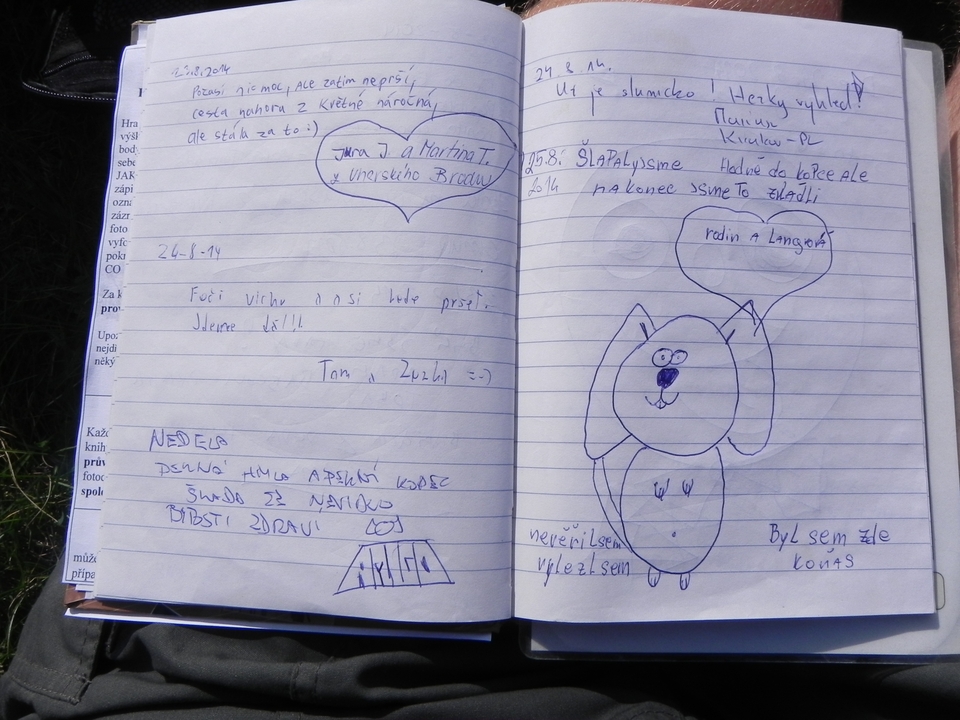 23.8.2014
Počasí nic moc, ale zatím neprší,
cesta nahoru z Květné náročná,
ale stála za to :)
Jura J. a Martina T.
z Uherského Brodu
24-8-14
Fučí vichr a asi bude pršet.
Jdeme dál!!!
Tom a Zuzka =-)
NEDELA
PEKNÁ HMLA A PEKNÍ KOPEC
ŠKODA ŽE NEVIDKO
ZDRAVÍ
24 8 14.
Už je slunicko! Hezky vyhled!
Kraków-PL
25.8. ŠLAPALY JSME Hodně do kopce ALE
2014 NAKONEC JSME TO ZVLÁDLI
rodina Langrová
nevěřil sem
vylezl sem
Byl sem zde
KOŇAS
Hra
výšk
body
sebe
JAK
zápi
ozna
zázn
foto
vyfo
poku
CO
Za k
prov
Upoz
nejdi
něký
Každ
knih
prův
fotoc
spole
může
přípa